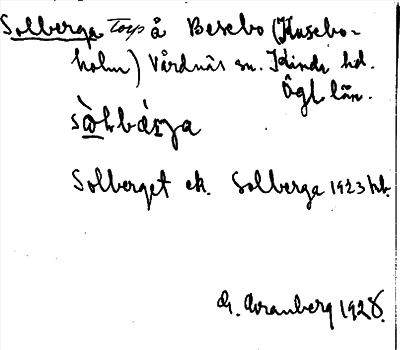 Solberga Torp å Besebo (Husebo-
holm) Vårdnäs sn. Kinda hd.
Ögl län.
Solberget ek. Solberga 1923 hb.
G. Franberg 1928.